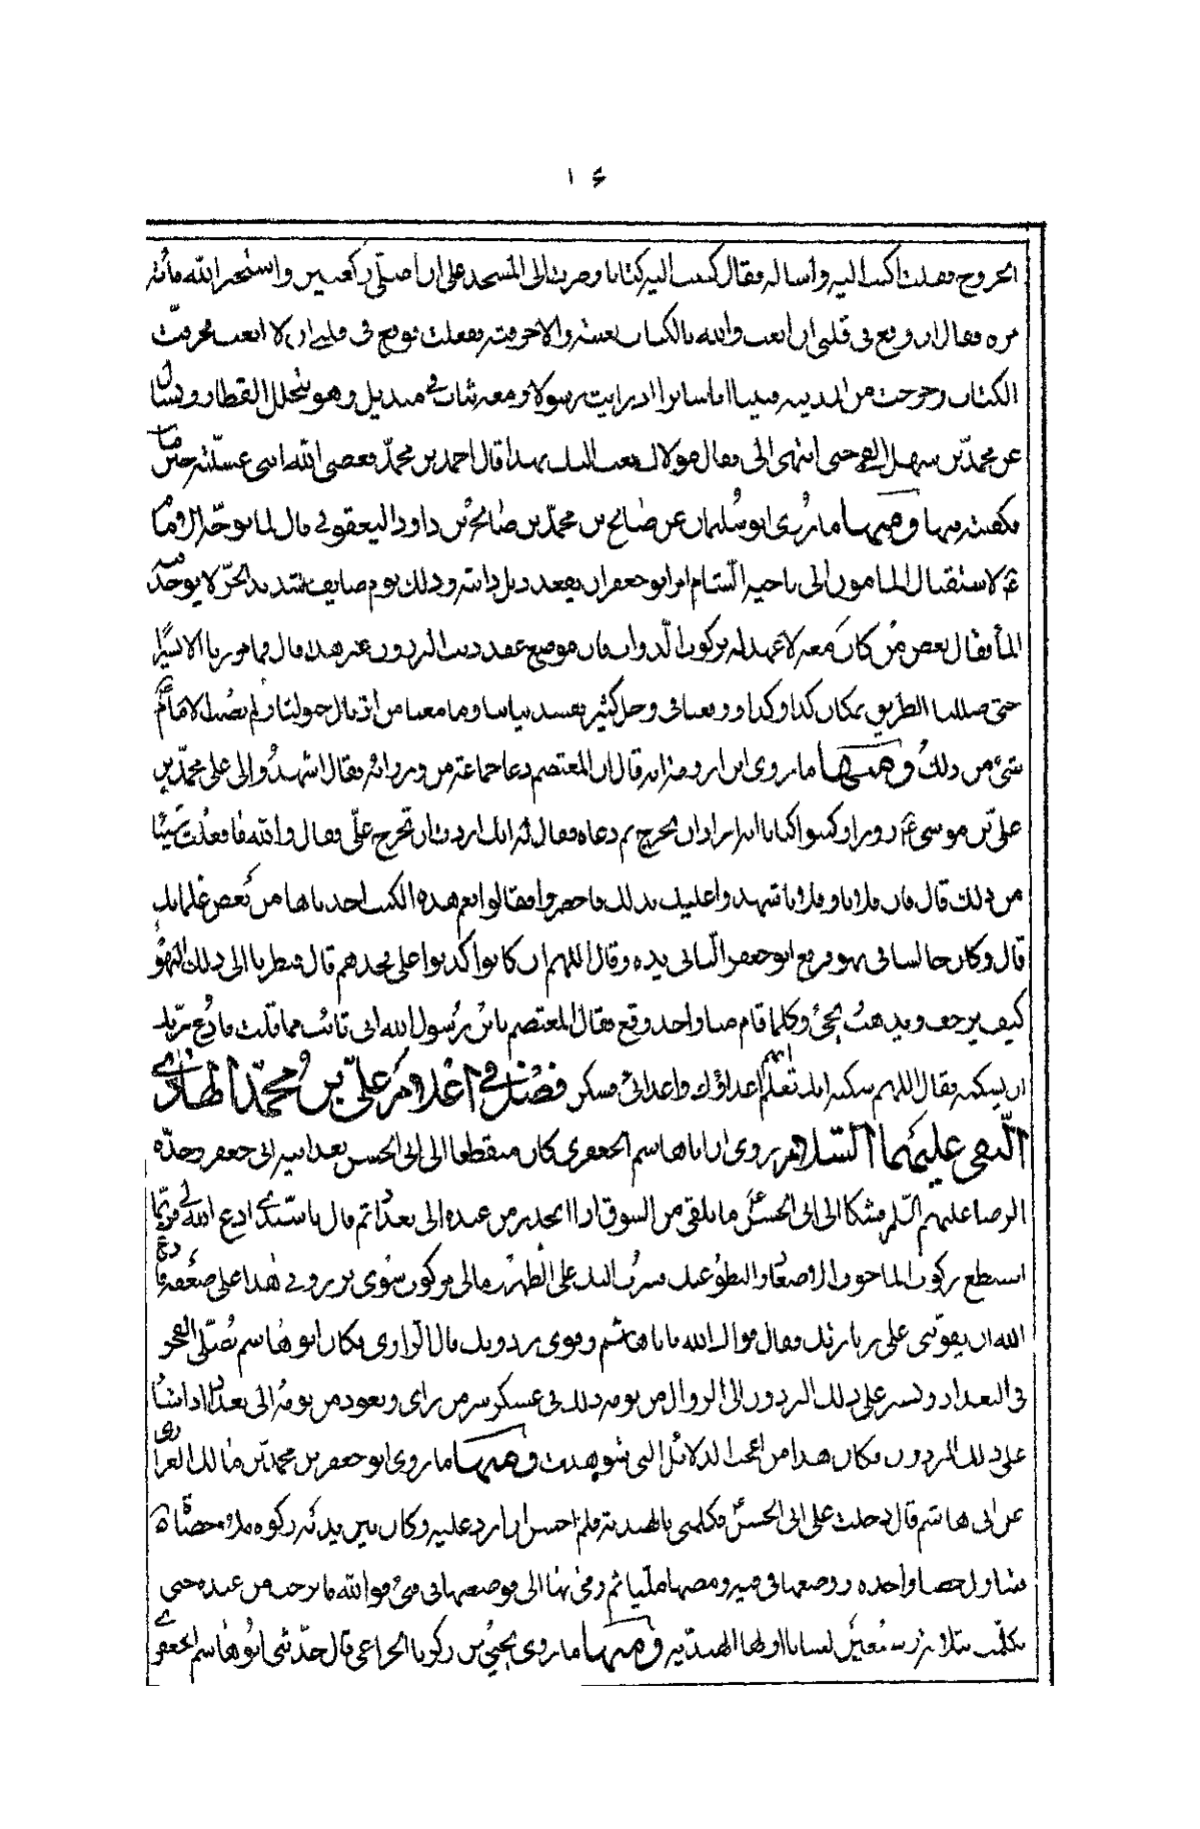 ١٤
الخروج فقلت اكتب اليه واساله فقال فكتبت اليه كتابا وصرت الى المسجد على ان اصلّي ركعتين واستخير الله مائة
مرة فقال ان وقع في قلبي ان ابعث والله بالكتاب بعثته والا خرقته ففعلت فوقع في قلبي ان لا ابعث فخرقت
الكتاب وخرجت من المدينة فبينا انا سائر اذ رايت رسولا ومعه ثياب في منديل وهو يتخلل القطار ويسأل
عن محمّد بن سهل القمي حتى انتهى الي فقال مولاك بعث اليك بهذا قال احمد بن محمّد فقضى الله اني غسّلته حين مات
فكفنته فيها ومنها ما روى ابو سليمان عن صالح بن محمّد بن صالح بن داود اليعقوبي قال لما توجّه
لاستقبال المامون الى ناحية الشّام امر ابو جعفر ان يعقد ذنب دابته وذلك يوم صايف شديد الحرّ لا يوجد فيه
المأ فقال بعض من كان معه لا عهد له بركوب الدواب فان موضع عقد ذنب البرذون غير هذا قال فما مررنا الا يسيرا
حتى ضللنا الطريق بمكان كذا وكذا ووقعنا في وحل كثير ففسد ثيابنا وما معنا ولم يصبه
شيء من ذلك ومنها ما روى ابن ارومة انه قال ان المعتصم دعا جماعة من وزرائه فقال اشهدوا لي على محمّد بن
علي بن موسى زورا واكتبوا كتابا انه اراد ان يخرج ثم دعاه فقال له انك اردت ان تخرج علي فقال والله ما فعلت شيئا
من ذلك قال فان فلانا وفلانا شهدوا عليك بذلك فاحضروا فقالوا نعم هذه الكتب اخذناها من بعض غلمانك
قال وكان جالسا في بهو فرفع ابو جعفر الثاني يده وقال اللهم ان كانوا كذبوا علي فخذهم قال فنظرنا الى ذلك البهو
كيف يرجف ويذهب ويجئ وكلما قام منا واحد وقع فقال المعتصم يابن رسول الله اني تائب مما قلت فادع ربك
ان يسكنه فقال اللهم سكنه انك تعلم انهم اعداؤك واعدائي فسكن فصل في اعلام علي بن محمّد الهادي
النقي عليهما السلام روى ان ابا هاشم الجعفري كان منقطعا الى ابي الحسن بعد ابيه ابي جعفر وجدّه
الرضا عليهم السّلم فشكا الى ابي الحسن ما يلقى من الشوق اذا انحدر من عنده الى بغداد ثم قال يا سيّدي ادع الله لي فربّما لم
استطع ركوب الماء خوف الاصعاد والبطؤ عنك فسرت اليك على الظهر ومالي مركوب سوى برذوني هذا على ضعفه فادع
الله ان يقوّيني على زيارتك فقال قوّاك الله يا با هاشم وقوى برذونك قال الرّاوي فكان ابو هاشم يصلّي الفجر
في البغداد ويسير على ذلك البرذون الى الزوال من يومه ذلك في عسكر سر من راى ويعود من يومه الى بغداد اذا شاء
على ذلك البرذون فكان هذا من اعجب الدلائل التي شوهدت ومنها ما روى ابو جعفر بن محمّد بن مالك الفزاري
عن ابي هاشم قال دخلت على ابي الحسن فكلمني بالهندية فلم احسن ان ارد عليه وكان بين يديه ركوة ملاء حصا
فتناول حصاة واحدة ووضعها في فيه ومصها مليّا ثم رمى بها الي فوضعتها في فمي فوالله ما برحت من عنده حتى
تكلّمت بثلاثة وسبعين لسانا اولها الهندية ومنها ما روى يحيى بن زكريا الخزاعي قال حدّثني ابو هاشم الجعفري